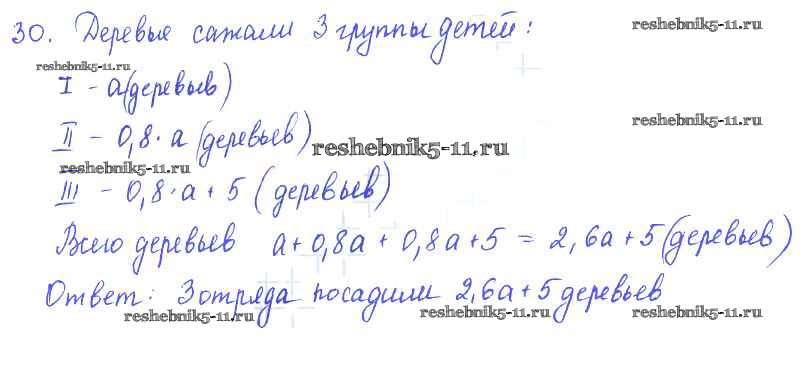 30. Деревья сажали 3 группы детей:
reshebnik5-11.ru
reshebnik5-11.ru
I - a (деревьев)
II - 0,8·a (деревьев)
reshebnik5-11.ru
reshebnik5-11.ru
reshebnik5-11.ru
III - 0,8·a + 5 (деревьев)
Всего деревьев a + 0,8a + 0,8a + 5 = 2,6a + 5 (деревьев)
Ответ: 3 отряда посадили 2,6a + 5 деревьев
reshebnik5-11.ru
reshebnik5-11.ru
reshebnik5-11.ru